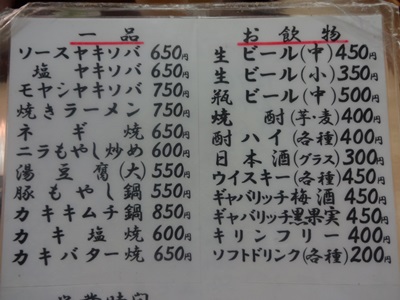 一品
ソースヤキソバ 650円
塩ヤキソバ 650円
モヤシヤキソバ 750円
焼きラーメン 750円
ネギ焼 650円
ニラもやし炒め 600円
湯豆腐(大) 550円
豚もやし鍋 550円
カキキムチ鍋 850円
カキ塩焼 600円
カキバター焼 650円
お飲物
生ビール(中) 450円
生ビール(小) 350円
瓶ビール(中) 500円
焼酎(芋・麦) 400円
酎ハイ(各種) 400円
日本酒(グラス) 300円
ウイスキー(各種) 450円
ギャバリッチ梅酒 450円
ギャバリッチ黒果実 450円
キリンフリー 400円
ソフトドリンク(各種) 200円